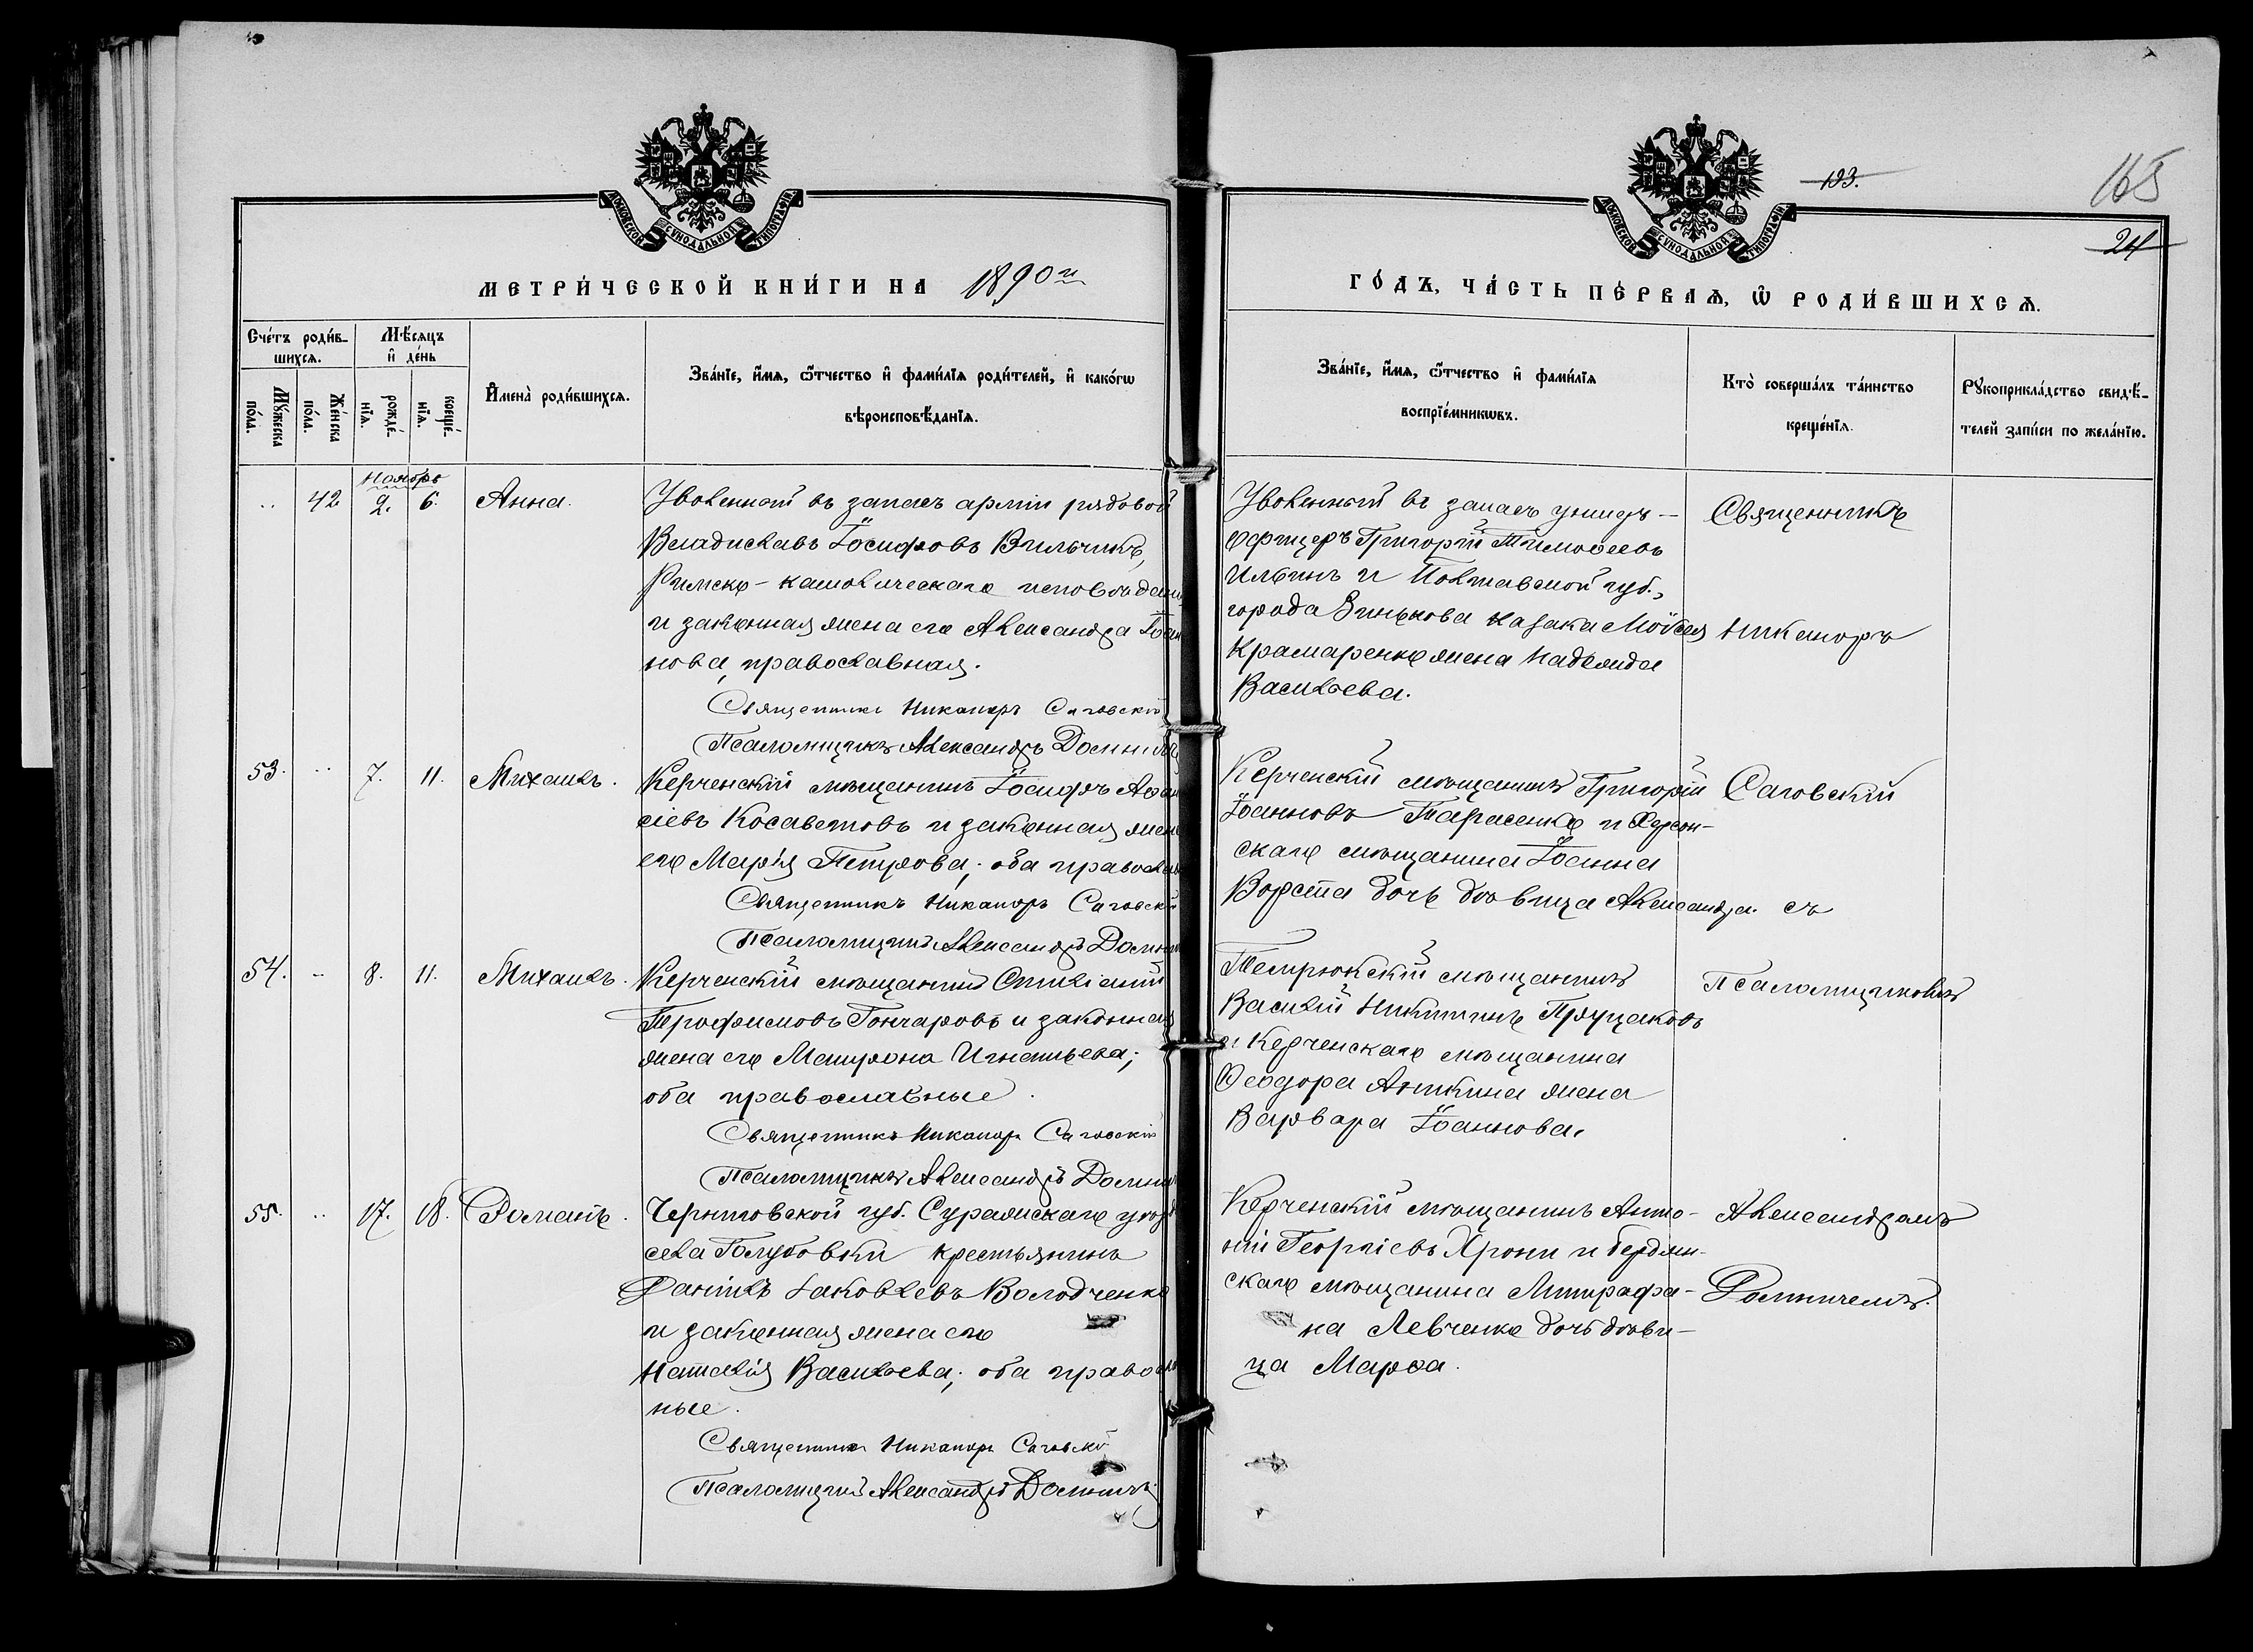 МЕТРИ́ЧЕСКОЙ КНИ́ГИ НА 1890 й
Сче́тъ роди́в-
шихся.
Мѣ́сяцъ
и҆ де́нь
Му́жеска
по́ла.
Же́нска
по́ла.
рожде́-
нїя.
креще́-
нїя.
И҆мена̀ роди́вшихся.
Зва́нїе, и҆́мя, ѻ҆́тчество и҆ фами́лїя роди́телей, и҆ како́гѡ
вѣроисповѣ́данїя.
Ноябрь
.. 42 2. 6. Анна.
Уволенный въ запасъ арміи рядовой
Владиславъ Іосифовъ Вильчикъ,
Римско-католическаго исповѣдані
и законная жена его Александра Іоан
нова, православная.
Священникъ Никаноръ Саговскій
Псаломщикъ Александръ
53. .. 7. 11. Михаилъ.
Керченскій мѣщанинъ Іосифъ Аѳана
сіевъ Косаветовъ и законная жена
его Марія Петрова; оба православ
Священникъ Никаноръ Саговскій
Псаломщикъ Александръ
54. .. 8. 11. Михаилъ.
Керченскій мѣщанинъ
Трофимовъ Гончаровъ и законная
жена его Матрона Игнатьева;
оба православные.
Священникъ Никаноръ Саговскій
Псаломщикъ Александръ
55. .. 17. 18. Романъ.
Черниговской губ. Суражскаго уѣзд
села Голубовки крестьянинъ
Даніилъ Іаковлевъ Володченко
и законная жена его
Наталія Васильева; оба правосла
ные.
Священникъ Никаноръ Саговскій
Псаломщикъ Александръ
193.
165
24
ГО́ДЪ, ЧА́СТЬ ПЕ́РВАЯ, Ѡ҆ РОДИ́ВШИХСЯ.
Зва́нїе, и҆́мя, ѻ҆́тчество и҆ фами́лїя
воспрїе́мникѡвъ.
Кто̀ соверша́лъ та́инство
креще́нїя.
Рукоприкла́дство свидѣ́-
телей за́писи по жела́нїю.
Уволенный въ запасъ унтеръ-
офицеръ Григорій Тимоѳеевъ
Ильинъ и Полтавской губ.,
города Зинькова казака Моисея
Крамаренко жена Надежда
Васильева.
Керченскій мѣщанинъ Григорій
Іоанновъ Тарасенко и Херсон-
скаго мѣщанина Іоанна
Ворста дочь дѣвица Александра.
Темрюкскій мѣщанинъ
Василій Никитинъ
и Керченскаго мѣщанина
Ѳеодора Аникина жена
Варвара Іоаннова.
Керченскій мѣщанинъ Анто-
ній Георгіевъ Хрони и Бердян-
скаго мѣщанина Митрофа-
на Левченко дочь дѣви-
ца Марѳа.
Священникъ
Никаноръ
Саговскій
съ
Псаломщикомъ
Александромъ